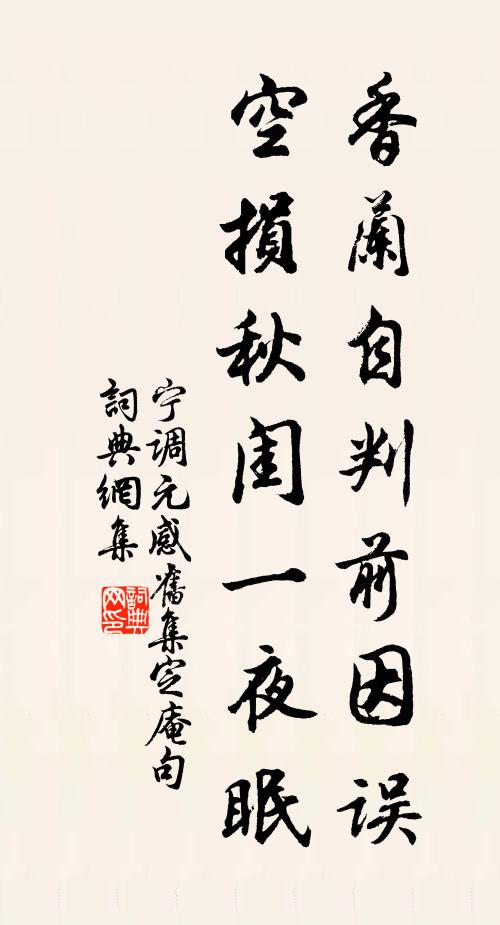 香蘭自判前因误
空損秋閨一夜眠
宁调元感舊集定庵句
詞典網集
詞典
网印